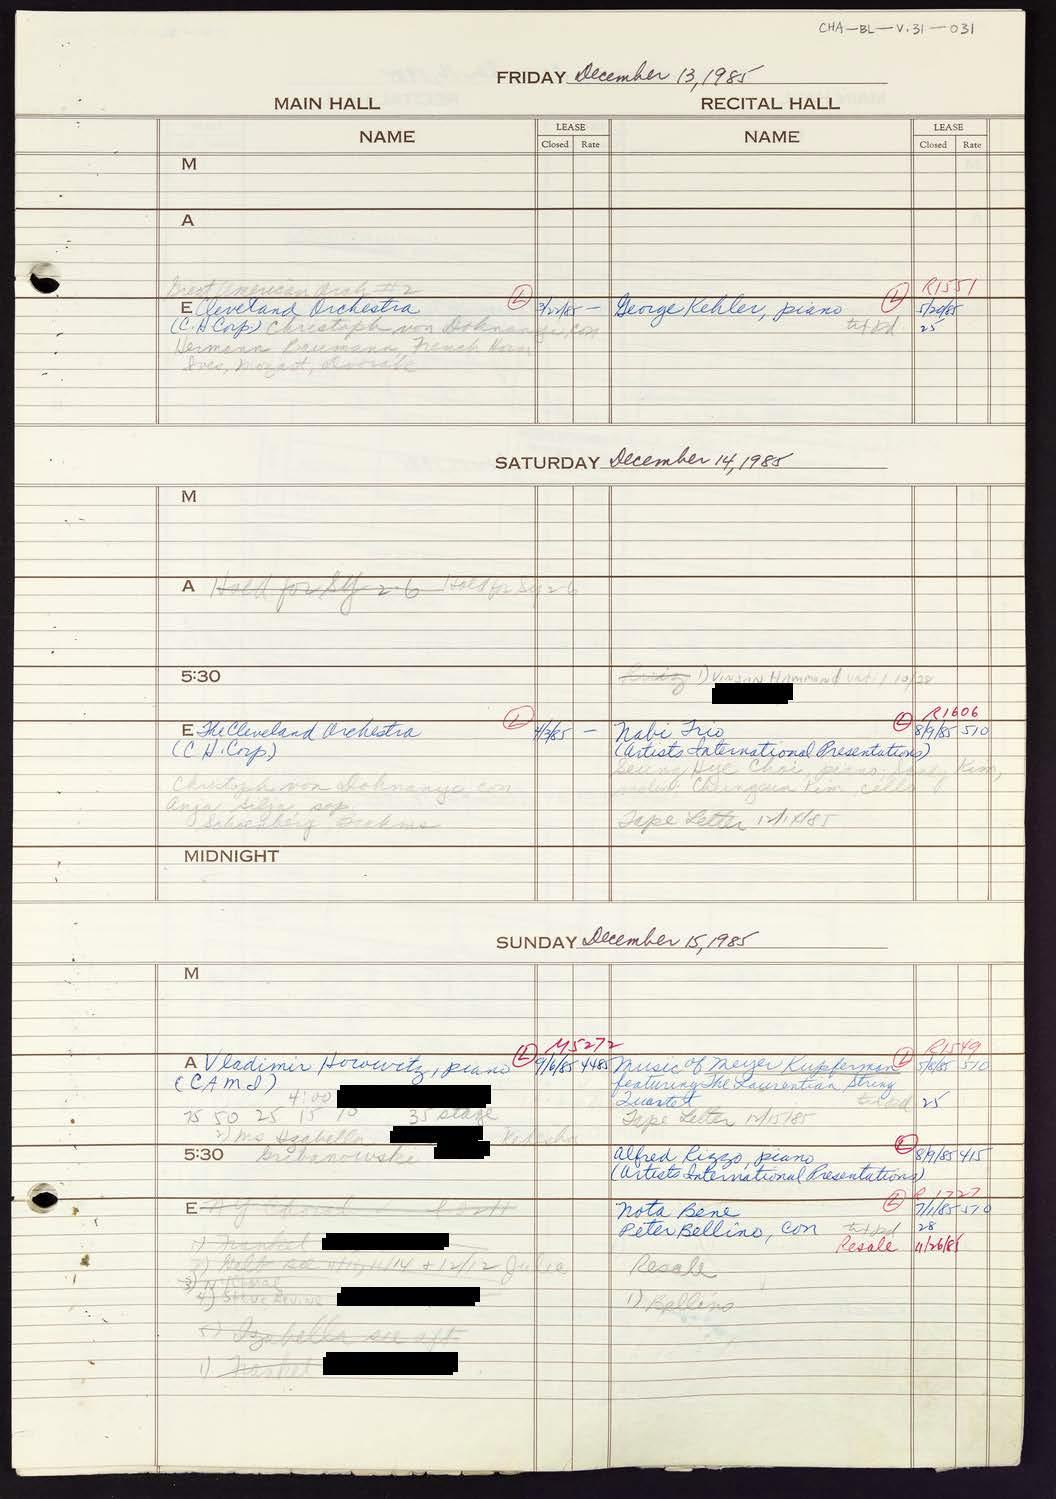 CHA-BL-V.31-031
FRIDAY December 13, 1985
MAIN HALL RECITAL HALL
NAME LEASE NAME LEASE
Closed Rate Closed Rate
M
A
Great American Orch #2
R1551
E Cleveland Orchestra L 3/22/85 - George Kehler, piano L 5/20/85
(C.H Corp.) Christoph von Dohnanyi, con 25
Hermann Baumann, French Horn
Ives, Mozart, Dvorak
SATURDAY December 14, 1985
M
A Hold for Sy 2-6 Hold for Sy 2-6
5:30 1) Vinson Hammond until 10/28
R1606
E The Cleveland Orchestra L 4/3/85 - Nabi Trio L 8/9/85 510
(C H. Corp) (Artists International Presentations)
Seung Hye Choi, piano, Kim,
Christoph von Dohnanyi con violin, Kim, cello
Anja Silja, sop.
Schoenberg, Brahms Tape Letter 12/14/85
MIDNIGHT
SUNDAY December 15, 1985
M
M5272 R1549
A Vladimir Horowitz, piano L 9/6/85 4485 Music of Meyer Kupferman L 5/8/85 510
(CAMI) featuring The Laurentian String
4:00 Quartet 25
75 50 25 15 10 35 stage Tape Letter 12/15/85
2) Ms Izabella
5:30 Gribanowski Alfred Rizzo, piano L 8/9/85 415
(Artists International Presentations)
R1727
E NY Choral Nota Bene L 7/1/85 510
Peter Bellino, con 28
1) Frankel Resale 11/26/85
2) 11/14 + 12/12 Julia Resale
3) NY Choral
4) Steve 1) Bellino
5) Izabella see aft
1) Frankel